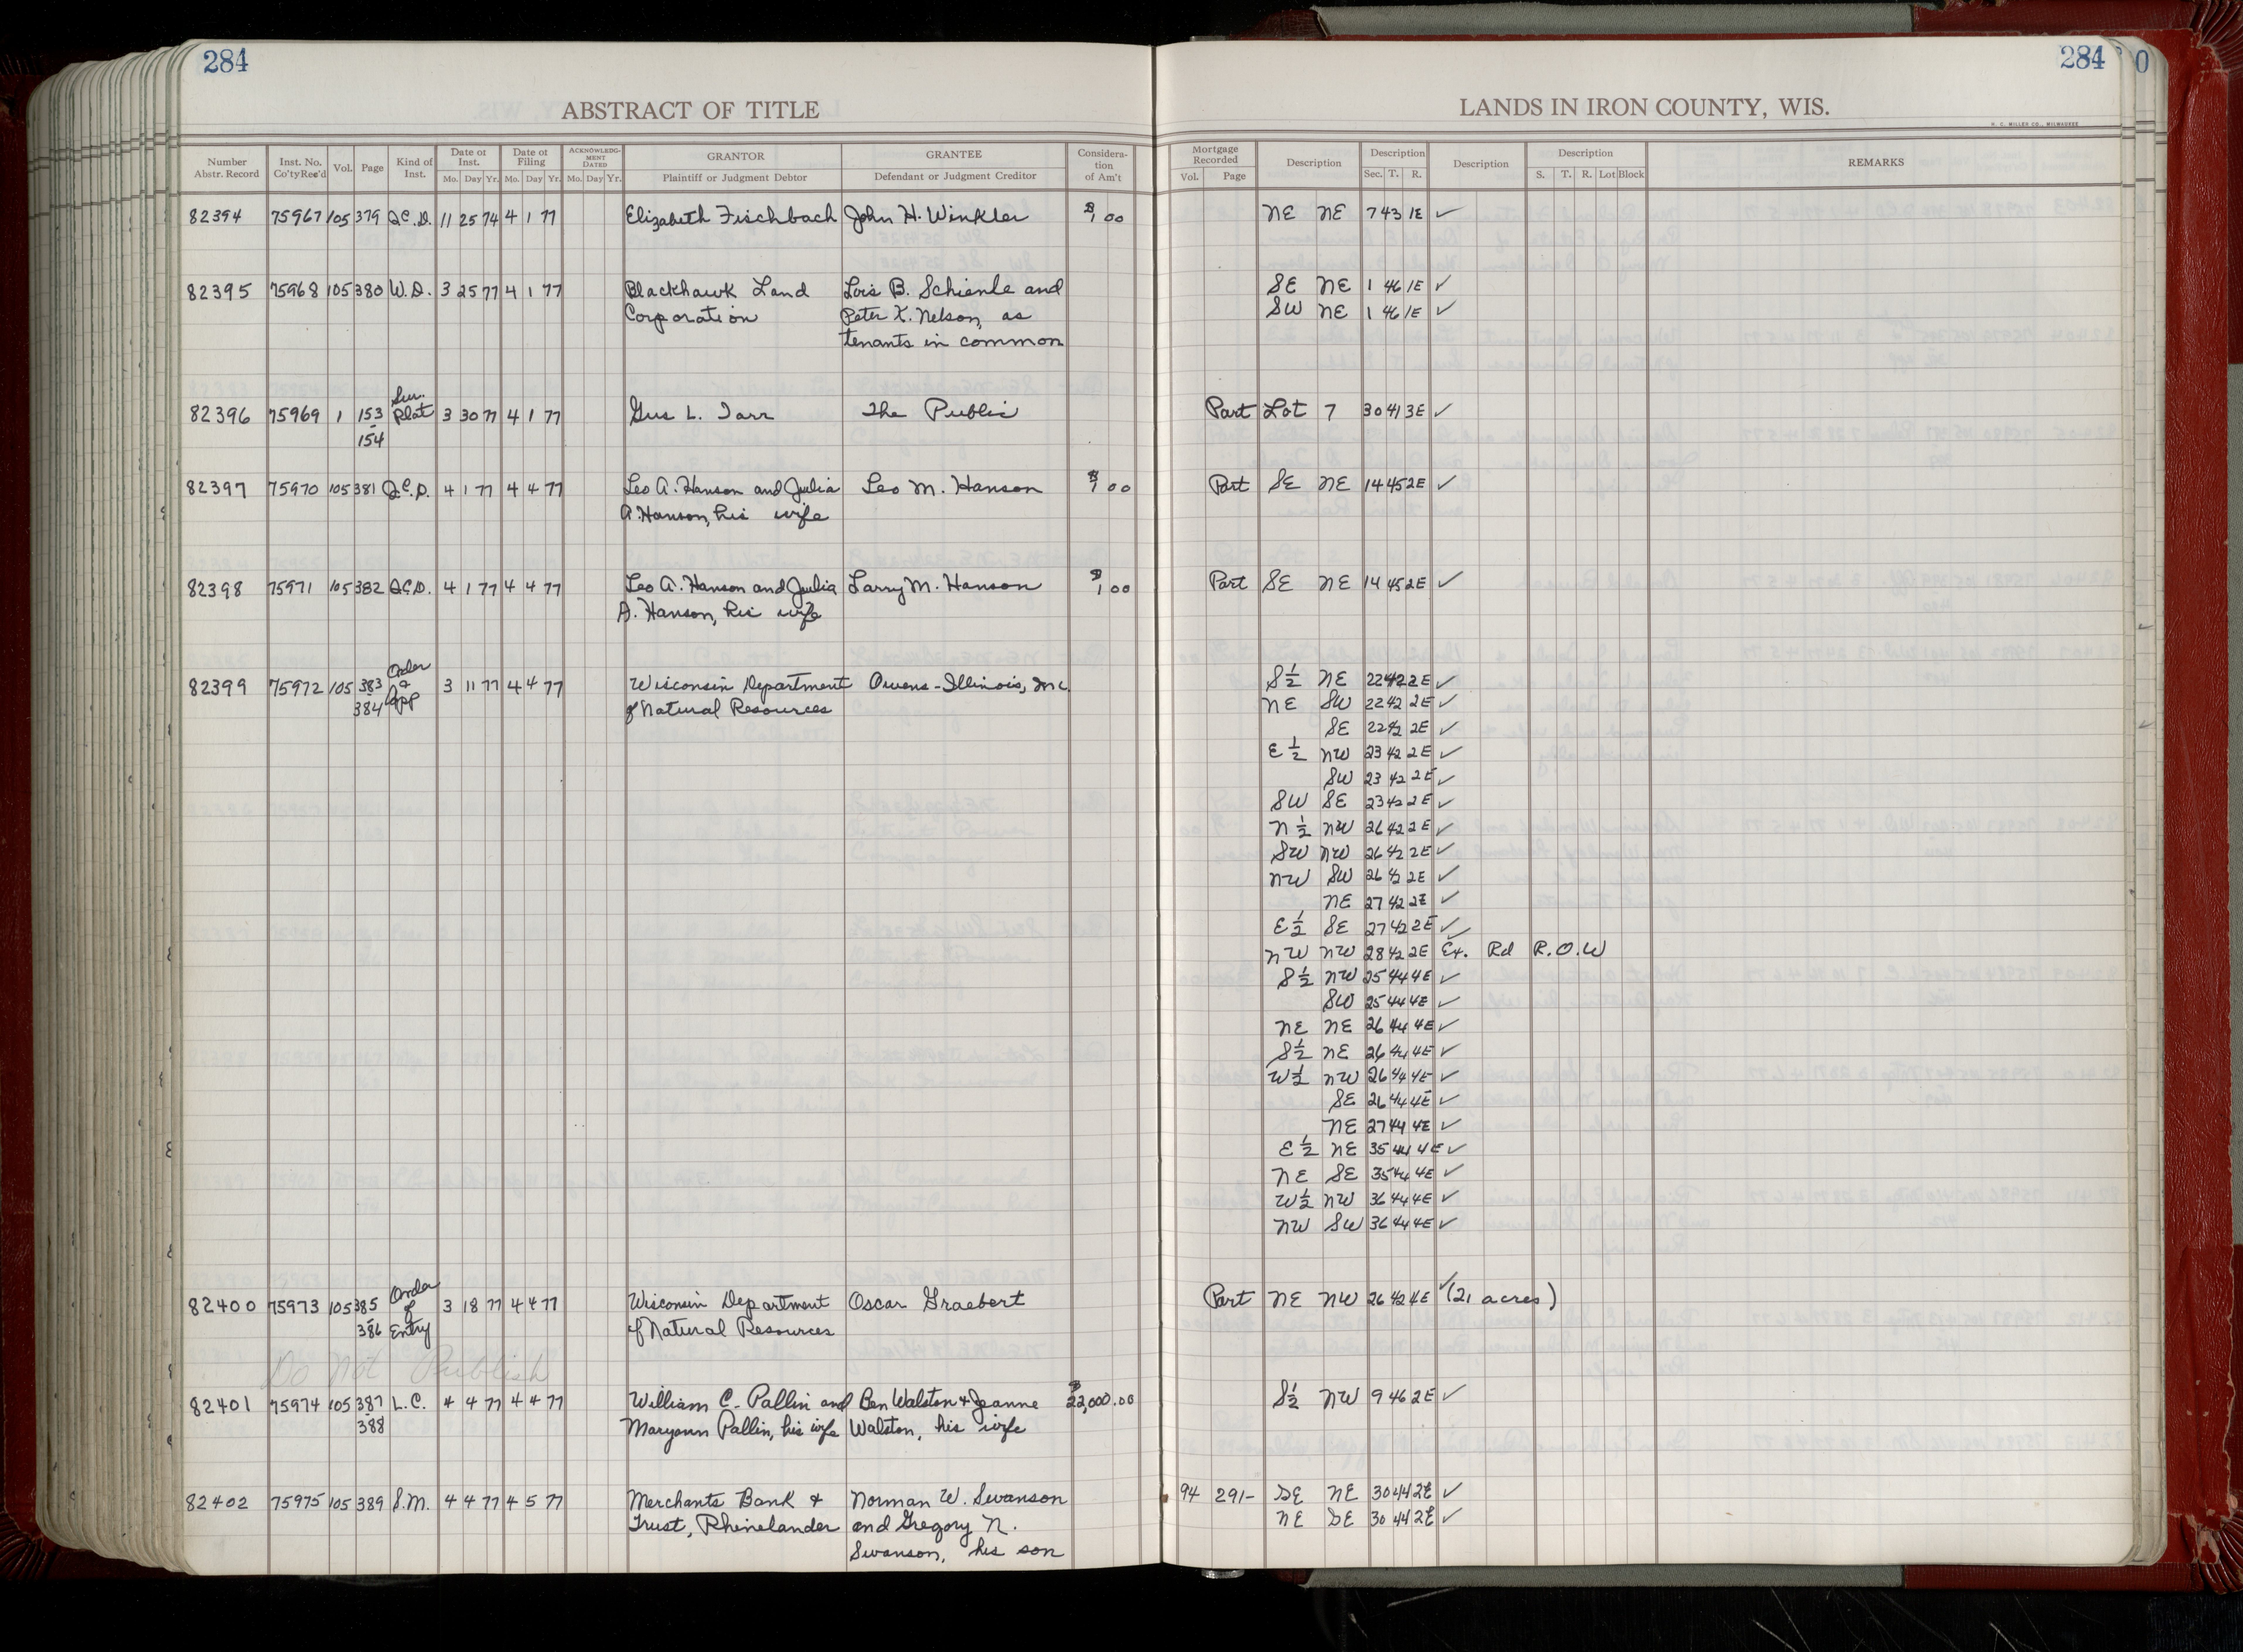 284
284
0
ABSTRACT OF TITLE
LANDS IN IRON COUNTY, WIS.
H. C. MILLER CO., MILWAUKEE
Number Abstr. Record | Inst. No. Co'ty Rec'd | Vol. | Page | Kind of Inst. | Date of Inst. Mo. Day Yr. | Date of Filing Mo. Day Yr. | ACKNOWLEDGMENT DATED Mo. Day Yr. | GRANTOR Plaintiff or Judgment Debtor | GRANTEE Defendant or Judgment Creditor | Consideration of Am't | Mortgage Recorded Vol. Page | Description | Description Sec. T. R. | Description | Description S. T. R. Lot Block | REMARKS
82394 75967 105 379 Q.C.D. 11 25 74 4 1 77 Elizabeth Fischbach John H. Winkler $1 00 NE NE 7 43 1E ✓
82395 75968 105 380 W.D. 3 25 77 4 1 77 Blackhawk Land Lois B. Schienle and SE NE 1 46 1E ✓
Corporation Peter K. Nelson, as SW NE 1 46 1E ✓
tenants in common
Sur.
82396 75969 1 153 Plat 3 30 77 4 1 77 Gus L. Tarr The Public Part Lot 7 30 41 3E ✓
-154
82397 75970 105 381 Q.C.D. 4 1 77 4 4 77 Leo A. Hanson and Julia Leo M. Hanson $1 00 Part SE NE 14 45 2E ✓
A. Hanson, his wife
82398 75971 105 382 Q.C.D. 4 1 77 4 4 77 Leo A. Hanson and Julia Larry M. Hanson $1 00 Part SE NE 14 45 2E ✓
A. Hanson, his wife
Order
82399 75972 105 383 & 3 11 77 4 4 77 Wisconsin Department Owens-Illinois, Inc. S½ NE 22 42 2E ✓
384 App of Natural Resources NE SW 22 42 2E ✓
SE 22 42 2E ✓
E½ NW 23 42 2E ✓
SW 23 42 2E ✓
SW SE 23 42 2E ✓
N½ NW 26 42 2E ✓
SW NW 26 42 2E ✓
NW SW 26 42 2E ✓
NE 27 42 2E ✓
E½ SE 27 42 2E ✓
NW NW 28 42 2E ✓ Ex. Rd R.O.W
S½ NW 25 44 4E ✓
SW 25 44 4E ✓
NE NE 26 44 4E ✓
S½ NE 26 44 4E ✓
W½ NW 26 44 4E ✓
SE 26 44 4E ✓
NE 27 44 4E ✓
E½ NE 35 44 4E ✓
NE SE 35 44 4E ✓
W½ NW 36 44 4E ✓
NW SW 36 44 4E ✓
Order
82400 75973 105 385 of 3 18 77 4 4 77 Wisconsin Department Oscar Graebert Part NE NW 26 42 4E ✓ (21 acres)
-386 Entry of Natural Resources
Do Not Publish
82401 75974 105 387 L.C. 4 4 77 4 4 77 William C. Pallin and Ben Walston & Jeanne $22,000.00 S½ NW 9 46 2E ✓
-388 Maryann Pallin, his wife Walston, his wife
82402 75975 105 389 S.M. 4 4 77 4 5 77 Merchants Bank & Norman W. Swanson 94 291- SE NE 30 44 2E ✓
Trust, Rhinelander and Gregory N. NE SE 30 44 2E ✓
Swanson, his son